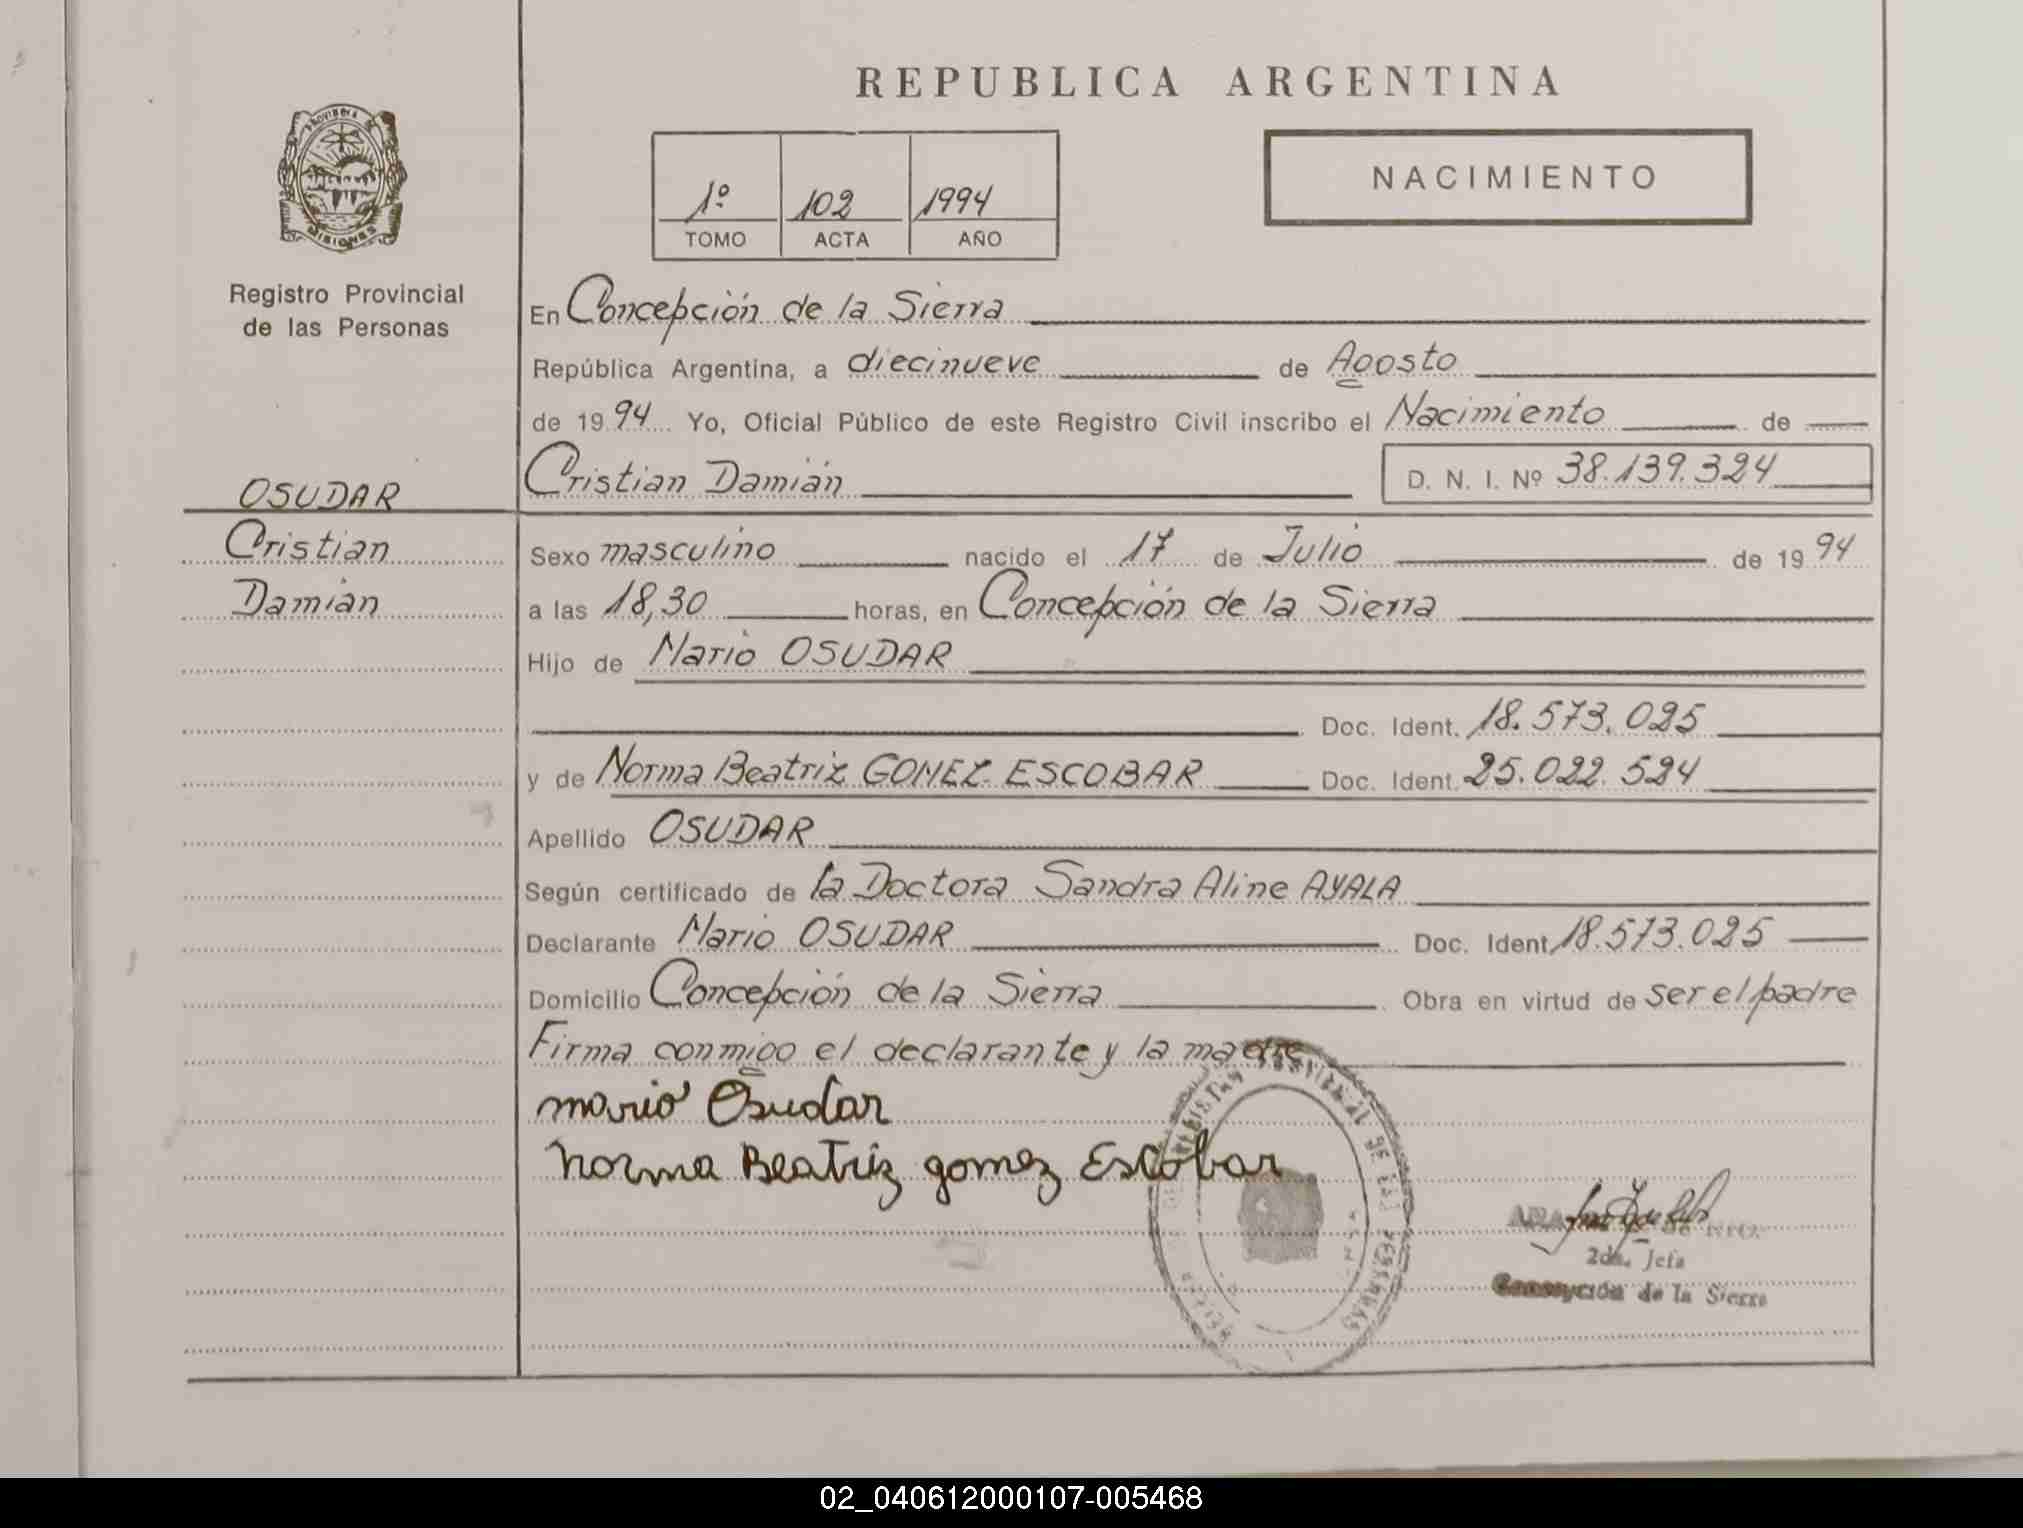 REPUBLICA ARGENTINA
PROVINCIA DE
MISIONES
Registro Provincial
de las Personas
1º 102 1994
TOMO ACTA AÑO
NACIMIENTO
En Concepción de la Sierra
República Argentina, a diecinueve de Agosto
de 1994 Yo, Oficial Público de este Registro Civil inscribo el Nacimiento de
OSUDAR
Cristian
Damián
Cristian Damián D. N. I. Nº 38.139.324
Sexo masculino nacido el 17 de Julio de 1994
a las 18,30 horas, en Concepción de la Sierra
Hijo de Mario OSUDAR
Doc. Ident. 18.573.025
y de Norma Beatriz GOMEZ ESCOBAR Doc. Ident. 25.022.524
Apellido OSUDAR
Según certificado de la Doctora Sandra Aline AYALA
Declarante Mario OSUDAR Doc. Ident. 18.573.025
Domicilio Concepción de la Sierra Obra en virtud de ser el padre
Firma conmigo el declarante y la madre
mario Osudar
Norma Beatriz gomez Escobar
REGISTRO PROVINCIAL DE LAS PERSONAS
2da. Jefa
Concepción de la Sierra
02_040612000107-005468